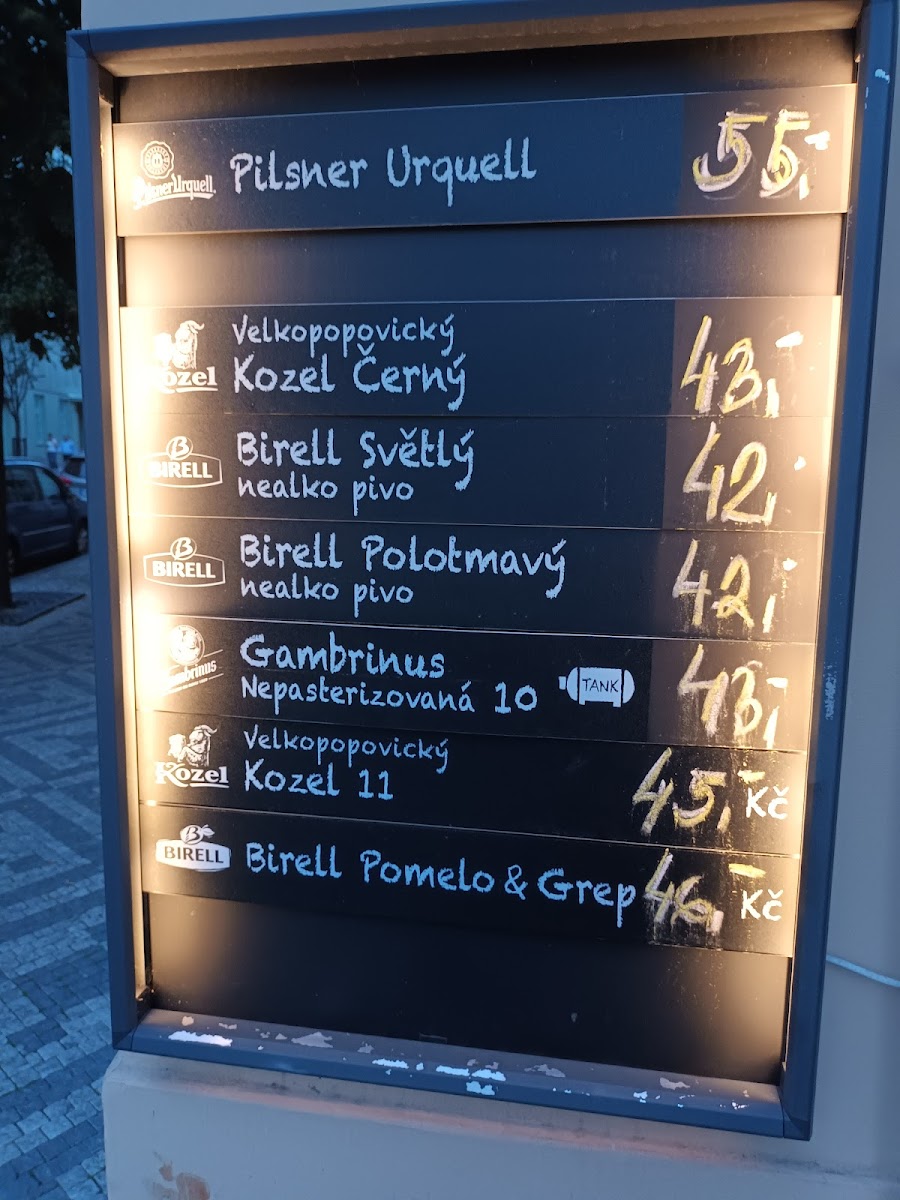 Pilsner Urquell. Pilsner Urquell 55,-
Velkopopovický
Kozel Kozel Černý 43,-
B
BIRELL Birell Světlý 42,-
nealko pivo
B
BIRELL Birell Polotmavý 42,-
nealko pivo
Gambrinus Gambrinus
Nepasterizovaná 10 TANK 43,-
Velkopopovický
Kozel Kozel 11 45,- Kč
B
BIRELL Birell Pomelo & Grep 46,- Kč